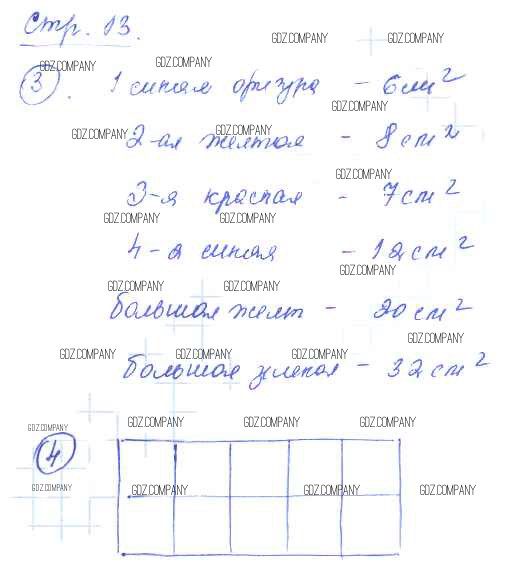 Стр. 13.
GDZ.COMPANY GDZ.COMPANY
GDZ.COMPANY GDZ.COMPANY
3. 1 синяя фигура – 6 см²
GDZ.COMPANY
GDZ.COMPANY GDZ.COMPANY
2-ая желтая – 8 см²
GDZ.COMPANY
3-я красная – 7 см²
GDZ.COMPANY GDZ.COMPANY
4-а синяя – 12 см²
GDZ.COMPANY
GDZ.COMPANY GDZ.COMPANY
большая желт – 20 см²
GDZ.COMPANY
GDZ.COMPANY GDZ.COMPANY GDZ.COMPANY
большая зеленая – 32 см²
GDZ.COMPANY GDZ.COMPANY GDZ.COMPANY GDZ.COMPANY
4
GDZ.COMPANY GDZ.COMPANY GDZ.COMPANY GDZ.COMPANY